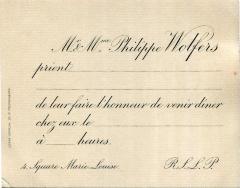 Mr & Mme Philippe Wolfers
prient
de leur faire l'honneur de venir dîner
chez eux le
à heures.
4, Square Marie-Louise
R.S.L.P.